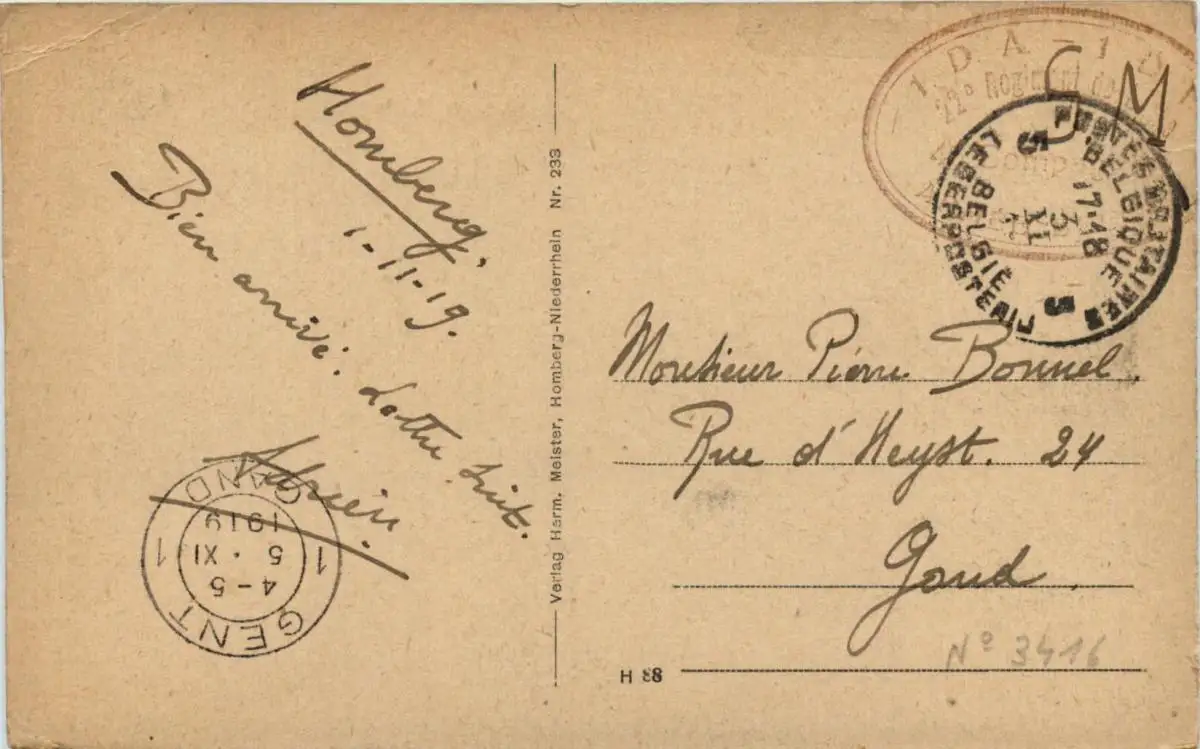 Homberg,
1-11-19.
Bien arrivé. Lettre suit.
Adrien.
GENT
4-5
5 · XI
1919
1 1
GAND
Verlag Harm. Meister, Homberg-Niederrhein Nr. 233
1 D A - 1 D
22e Regiment de
S M
POSTES MILITAIRES
BELGIQUE
5 5
17-18
3
XI
BELGIË
LEGERPOSTERIJ
Monsieur Pierre Bonnel.
Rue d'Heyst. 24
Gand.
No 3416
H 88